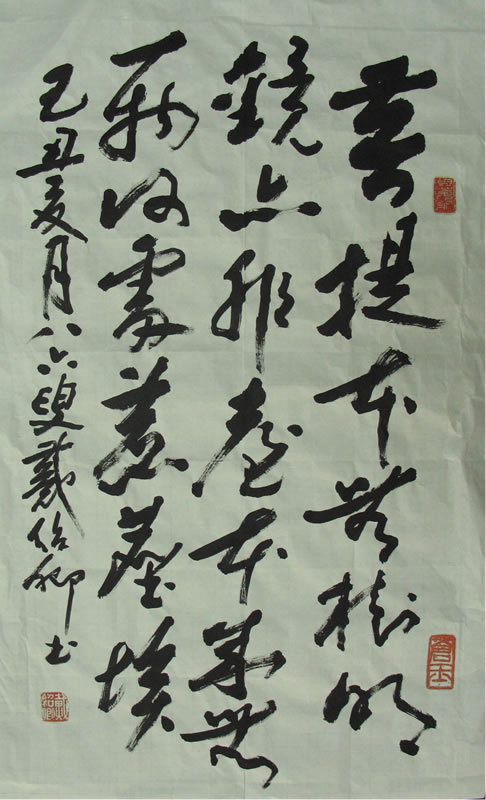 菩提本無樹明
鏡亦非臺本來無
一物何處惹塵埃
己丑夏月八六叟戴紹卿书